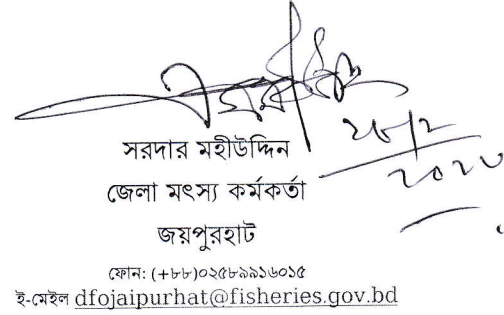 সরদার মহীউদ্দিন
জেলা মৎস্য কর্মকর্তা
জয়পুরহাট
ফোন: (+৮৮)০২৫৮৯৯১৬০১৫
ই-মেইল dfojaipurhat@fisheries.gov.bd